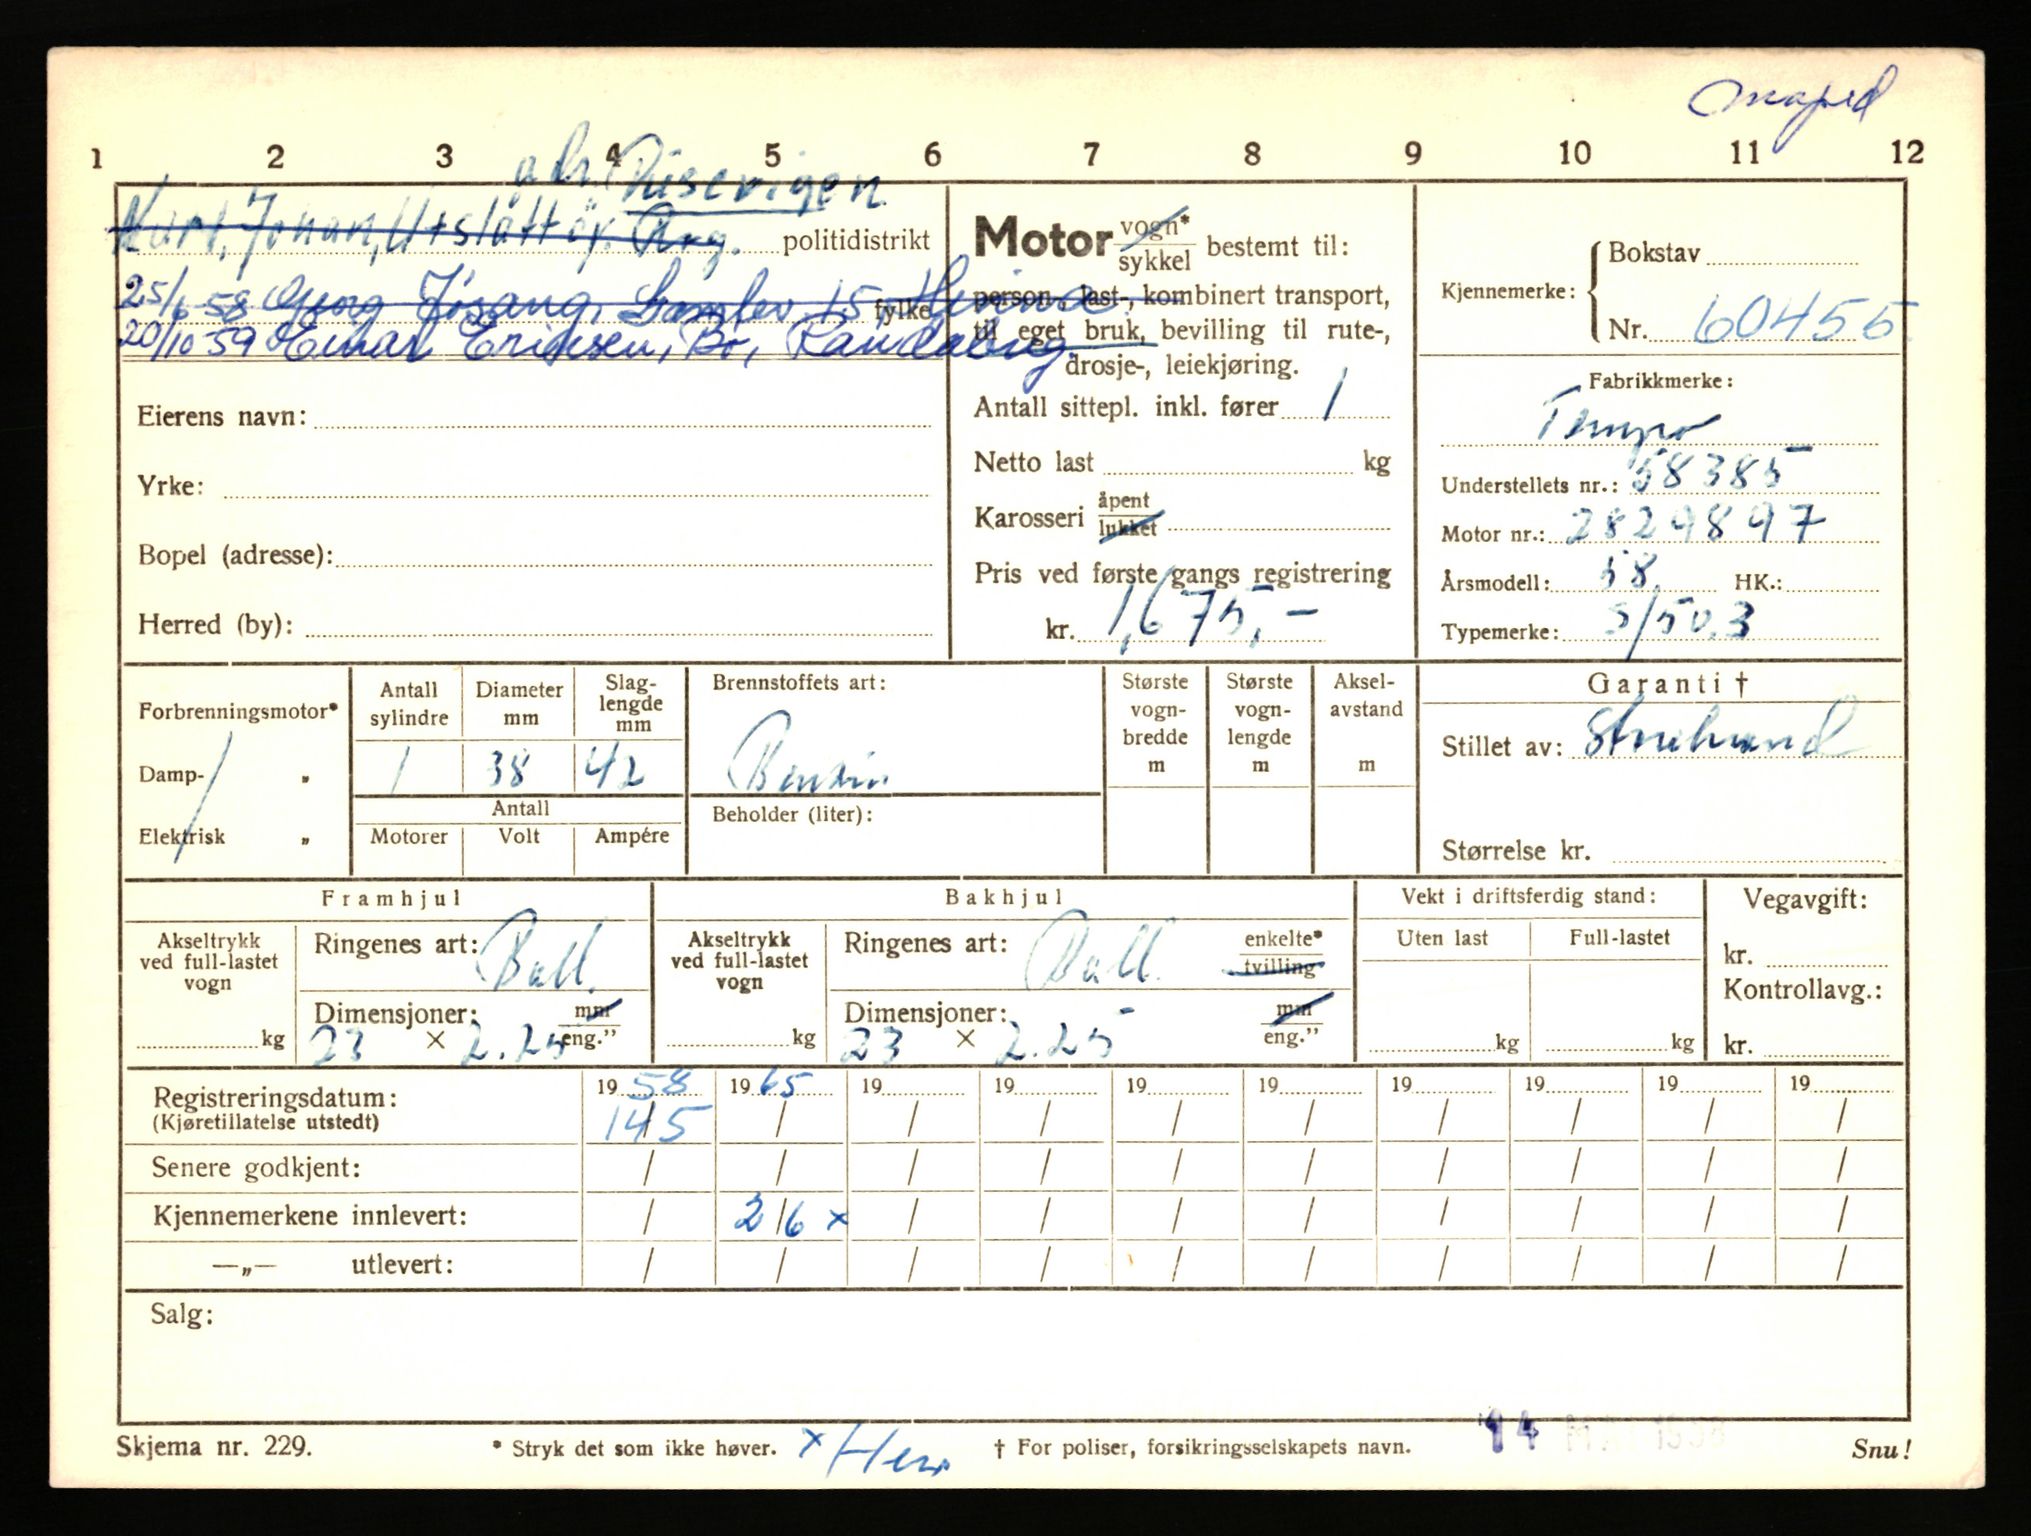 moped
1 2 3 4 5 6 7 8 9 10 11 12
adr. Risevigen
Kurt, Johan, Utslåttøy. Arg. politidistrikt
25/6 58 Georg Jøsang, Gamlev 15, Hinna fylke
20/10 59 Einar Eriksen, Bø, Randaberg
Eierens navn:
Yrke:
Bopel (adresse):
Herred (by):
Motor vogn* / sykkel bestemt til:
person-, last-, kombinert transport,
til eget bruk, bevilling til rute-,
drosje-, leiekjøring.
Antall sittepl. inkl. fører 1
Netto last kg
Karosseri åpent / lukket
Pris ved første gangs registrering
kr. 1,675,-
Kjennemerke: Bokstav
Nr. 60455
Fabrikkmerke:
Tempo
Understellets nr.: 58385
Motor nr.: 2829897
Årsmodell: 58. HK.:
Typemerke: S/50.3
Forbrenningsmotor*
Damp- "
Elektrisk "
Antall sylindre Diameter mm Slag-lengde mm
1 38 42
Antall
Motorer Volt Ampére
Brennstoffets art:
Bensin
Beholder (liter):
Største vogn-bredde m
Største vogn-lengde m
Aksel-avstand m
Garanti †
Stillet av: Storebrand
Størrelse kr.
Framhjul
Akseltrykk ved full-lastet vogn
kg
Ringenes art: Ball.
Dimensjoner: mm / eng."
23 × 2.25
Bakhjul
Akseltrykk ved full-lastet vogn
kg
Ringenes art: Ball. enkelte* / tvilling
Dimensjoner: mm / eng."
23 × 2.25
Vekt i driftsferdig stand:
Uten last Full-lastet
kg kg
Vegavgift:
kr.
Kontrollavg.:
kr.
Registreringsdatum: 19 58 19 65 19 19 19 19 19 19 19 19
(Kjøretillatelse utstedt) 14/5 / / / / / / / / /
Senere godkjent: / / / / / / / / / /
Kjennemerkene innlevert: / 2/6 x / / / / / / / /
—„— utlevert: / / / / / / / / / /
Salg:
14 MAI 1958
Skjema nr. 229. * Stryk det som ikke høver. x Hen. † For poliser, forsikringsselskapets navn. Snu!